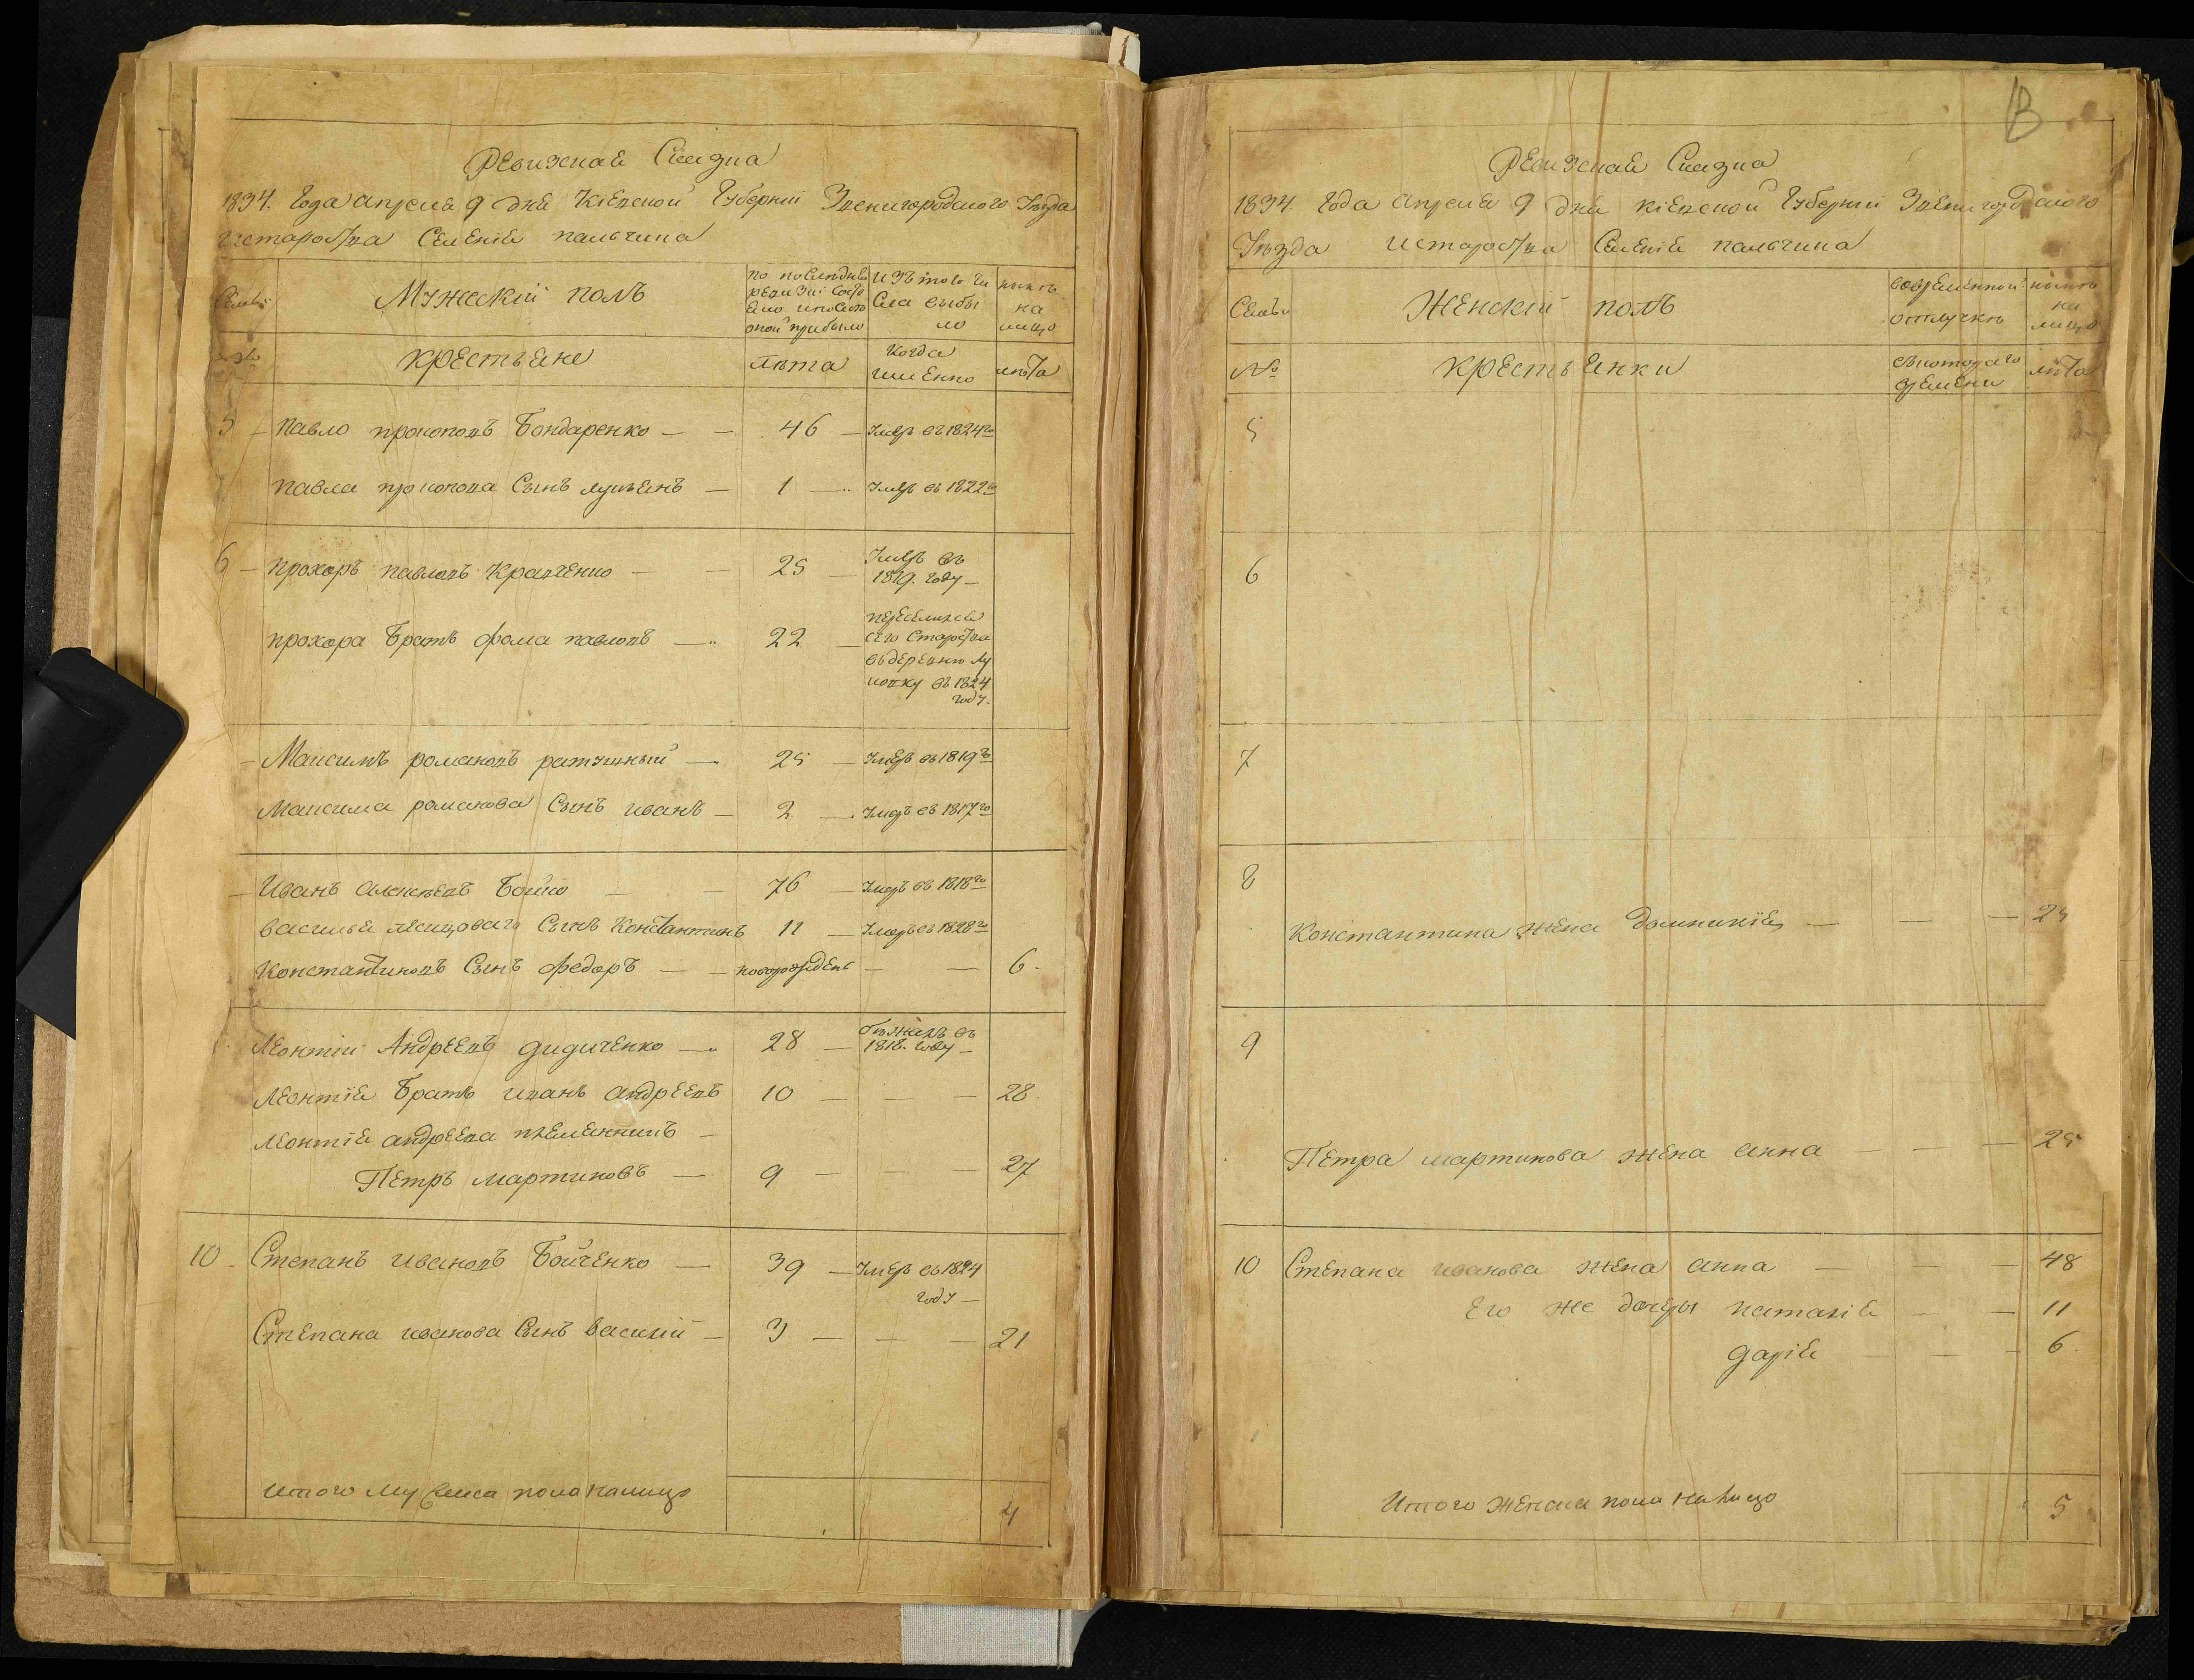 Ревизская Сказка
1834. Года апреля 9 дня Кіевской Губерніи Звенигородского Уезда
и староства Селеніе пальчика
Семьи
Мужескій полъ
по последней
ревизіи состо
яло и после
оной прибыло
Изъ того чи
сла выбы
ло
ныне
на
лицо
№
крестьяне
лета
Когда
именно
лета
5 — Павло прокоповъ Бондаренко — — 46 — Умеръ въ 1824го
павла прокопова Сынъ лукьянъ — 1 — Умръ въ 1822го
6 — прохоръ павловъ Кравченко — — 25 — Умеръ въ
1819. году —
прохора братъ фома павловъ — 22 —
переселился
сего Староства
въ деревню Лу
ковку въ 1824
году.
— Максимъ романовъ ратушный — 25 — Умеръ въ 1819го
Максима романова Сынъ иванъ — 2 — Умръ въ 1817го
— Иванъ алексеевъ Бойко — — 76 — Умръ въ 1818го
василья Сынъ Константинъ 11 — Умеръ въ 1828го
Константиновъ Сынъ федоръ — — новорожденъ — — 6 -
Леонтій Андреевъ дидиченко — 28 — бежалъ въ
1818. году —
Леонтія братъ иванъ андреевъ 10 — — — 28
Леонтія андреева племенникъ —
Петръ мартиновъ — 9 — — — 27
10 - Степанъ ивановъ Бойченко — 39 — Умеръ въ 1824
году —
Степана иванова Сынъ василій — 3 — — — 21
Итого Мужеска пола налицо
4
В
Ревизская Сказка
1834 Года апреля 9 дня Кіевской Губерніи Звенигородского
Уезда и староства Селеніе пальчика
Семьи
Женскій полъ
во временной
отлучке
ныне
на
лицо
№
крестьянки
съ котораго
времени
лета
5
6
7
8
Константина жена домникія — — — 25
9
Петра мартинова жена анна — — — 25
10 Степана иванова жена анна — — — 48
Его же дочеры наталія — — 11
дарія — — — 6
Итого женска пола налицо
5